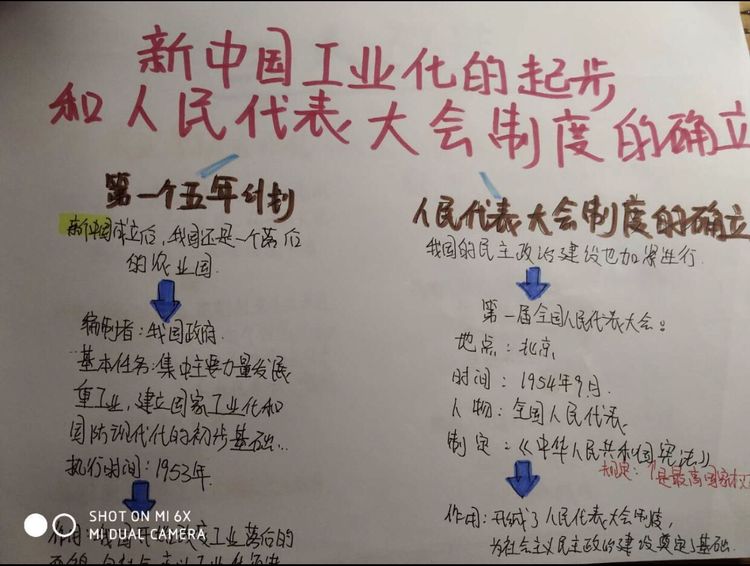 新中国工业化的起步
和人民代表大会制度的确立
第一个五年计划
新中国成立后,我国还是一个落后
的农业国.
编制者:我国政府.
基本任务:集中主要力量发展
重工业,建立国家工业化和
国防现代化的初步基础..
执行时间:1953年.
作用:我国开始改变工业落后的
人民代表大会制度的确立
我国的民主政治建设也加紧进行.
第一届全国人民代表大会。
地点:北京
时间:1954年9月.
人物:全国人民代表
制定:《中华人民共和国宪法》
规定:是最高国家权
作用:形成了人民代表大会制度,
为社会主义民主政治建设奠定了基础.
SHOT ON MI 6X
MI DUAL CAMERA